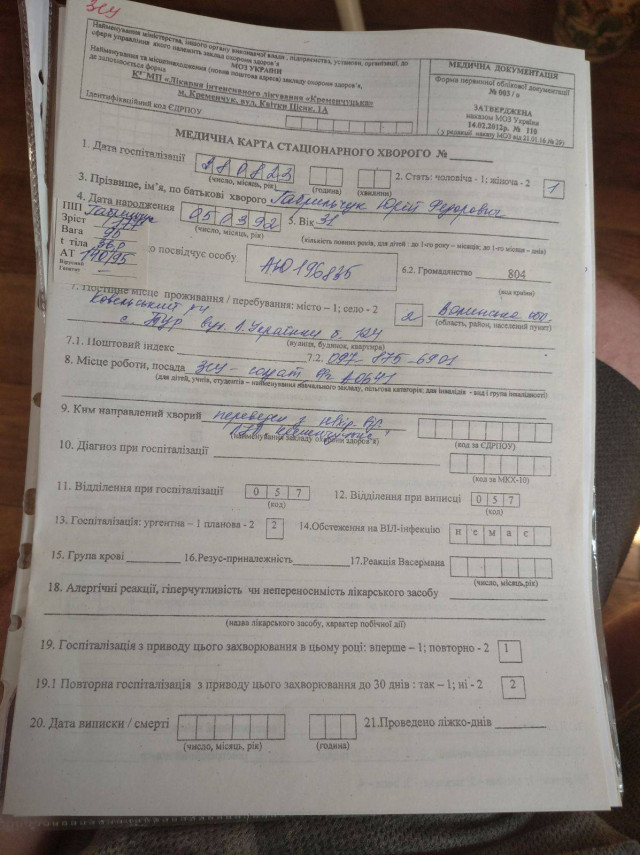 ЗСУ
Найменування міністерства, іншого органу виконавчої влади, підприємства, установи, організації, до
сфери управління якого належить заклад охорони здоров'я
МОЗ УКРАЇНИ
Найменування та місцезнаходження (повна поштова адреса) закладу охорони здоров'я,
де заповнюється форма
КНМП «Лікарня інтенсивного лікування «Кременчуцька»
м. Кременчук, вул. Квітки Цісик, 1А
Ідентифікаційний код ЄДРПОУ
МЕДИЧНА ДОКУМЕНТАЦІЯ
Форма первинної облікової документації
№ 003 / о
ЗАТВЕРДЖЕНА
наказом МОЗ України
14.02.2012р. № 110
(у редакції наказу МОЗ від 21.01.16 № 29)
МЕДИЧНА КАРТА СТАЦІОНАРНОГО ХВОРОГО №
1. Дата госпіталізації 280823
(число, місяць, рік) (година) (хвилини)
2. Стать: чоловіча - 1; жіноча - 2 1
3. Прізвище, ім'я, по батькові хворого Гаврильчук Юрій Федорович
4. Дата народження 050392 5. Вік 31
(число, місяць, рік) (кількість повних років, для дітей : до 1-го року – місяців; до 1-го місяця – днів)
ПІП Гаврильчук
Зріст 177
Вага 95
t тіла 36,8
АТ 140/95
о посвідчує особу АЮ196835 6.2. Громадянство 804
(код країни)
7. Постійне місце проживання / перебування: місто – 1; село - 2 2 Волинська обл.
(область, район, населений пункт)
Ковельський р-н
с. Тур вул. Л.Українки б. 124
(вулиця, будинок, квартира)
7.1. Поштовий індекс 7.2. 097 875-6901
8. Місце роботи, посада ЗСУ - солдат В/ч А0641
(для дітей, учнів, студентів – найменування навчального закладу, пільгова категорія; для інвалідів - вид і група інвалідності)
9. Ким направлений хворий переведен з
(найменування закладу охорони здоров'я) (код за ЄДРПОУ)
10. Діагноз при госпіталізації
(код за МКХ-10)
11. Відділення при госпіталізації 057 12. Відділення при виписці 057
(код) (код)
13. Госпіталізація: ургентна – 1 планова - 2 2 14.Обстеження на ВІЛ-інфекцію немає
15. Група крові 16.Резус-приналежність 17.Реакція Васермана
(число, місяць,рік)
18. Алергічні реакції, гіперчутливість чи непереносимість лікарського засобу
(назва лікарського засобу, характер побічної дії)
19. Госпіталізація з приводу цього захворювання в цьому році: вперше – 1; повторно - 2 1
19.1 Повторна госпіталізація з приводу цього захворювання до 30 днів : так – 1; ні - 2 2
20. Дата виписки / смерті 21.Проведено ліжко-днів
(число, місяць, рік) (година)